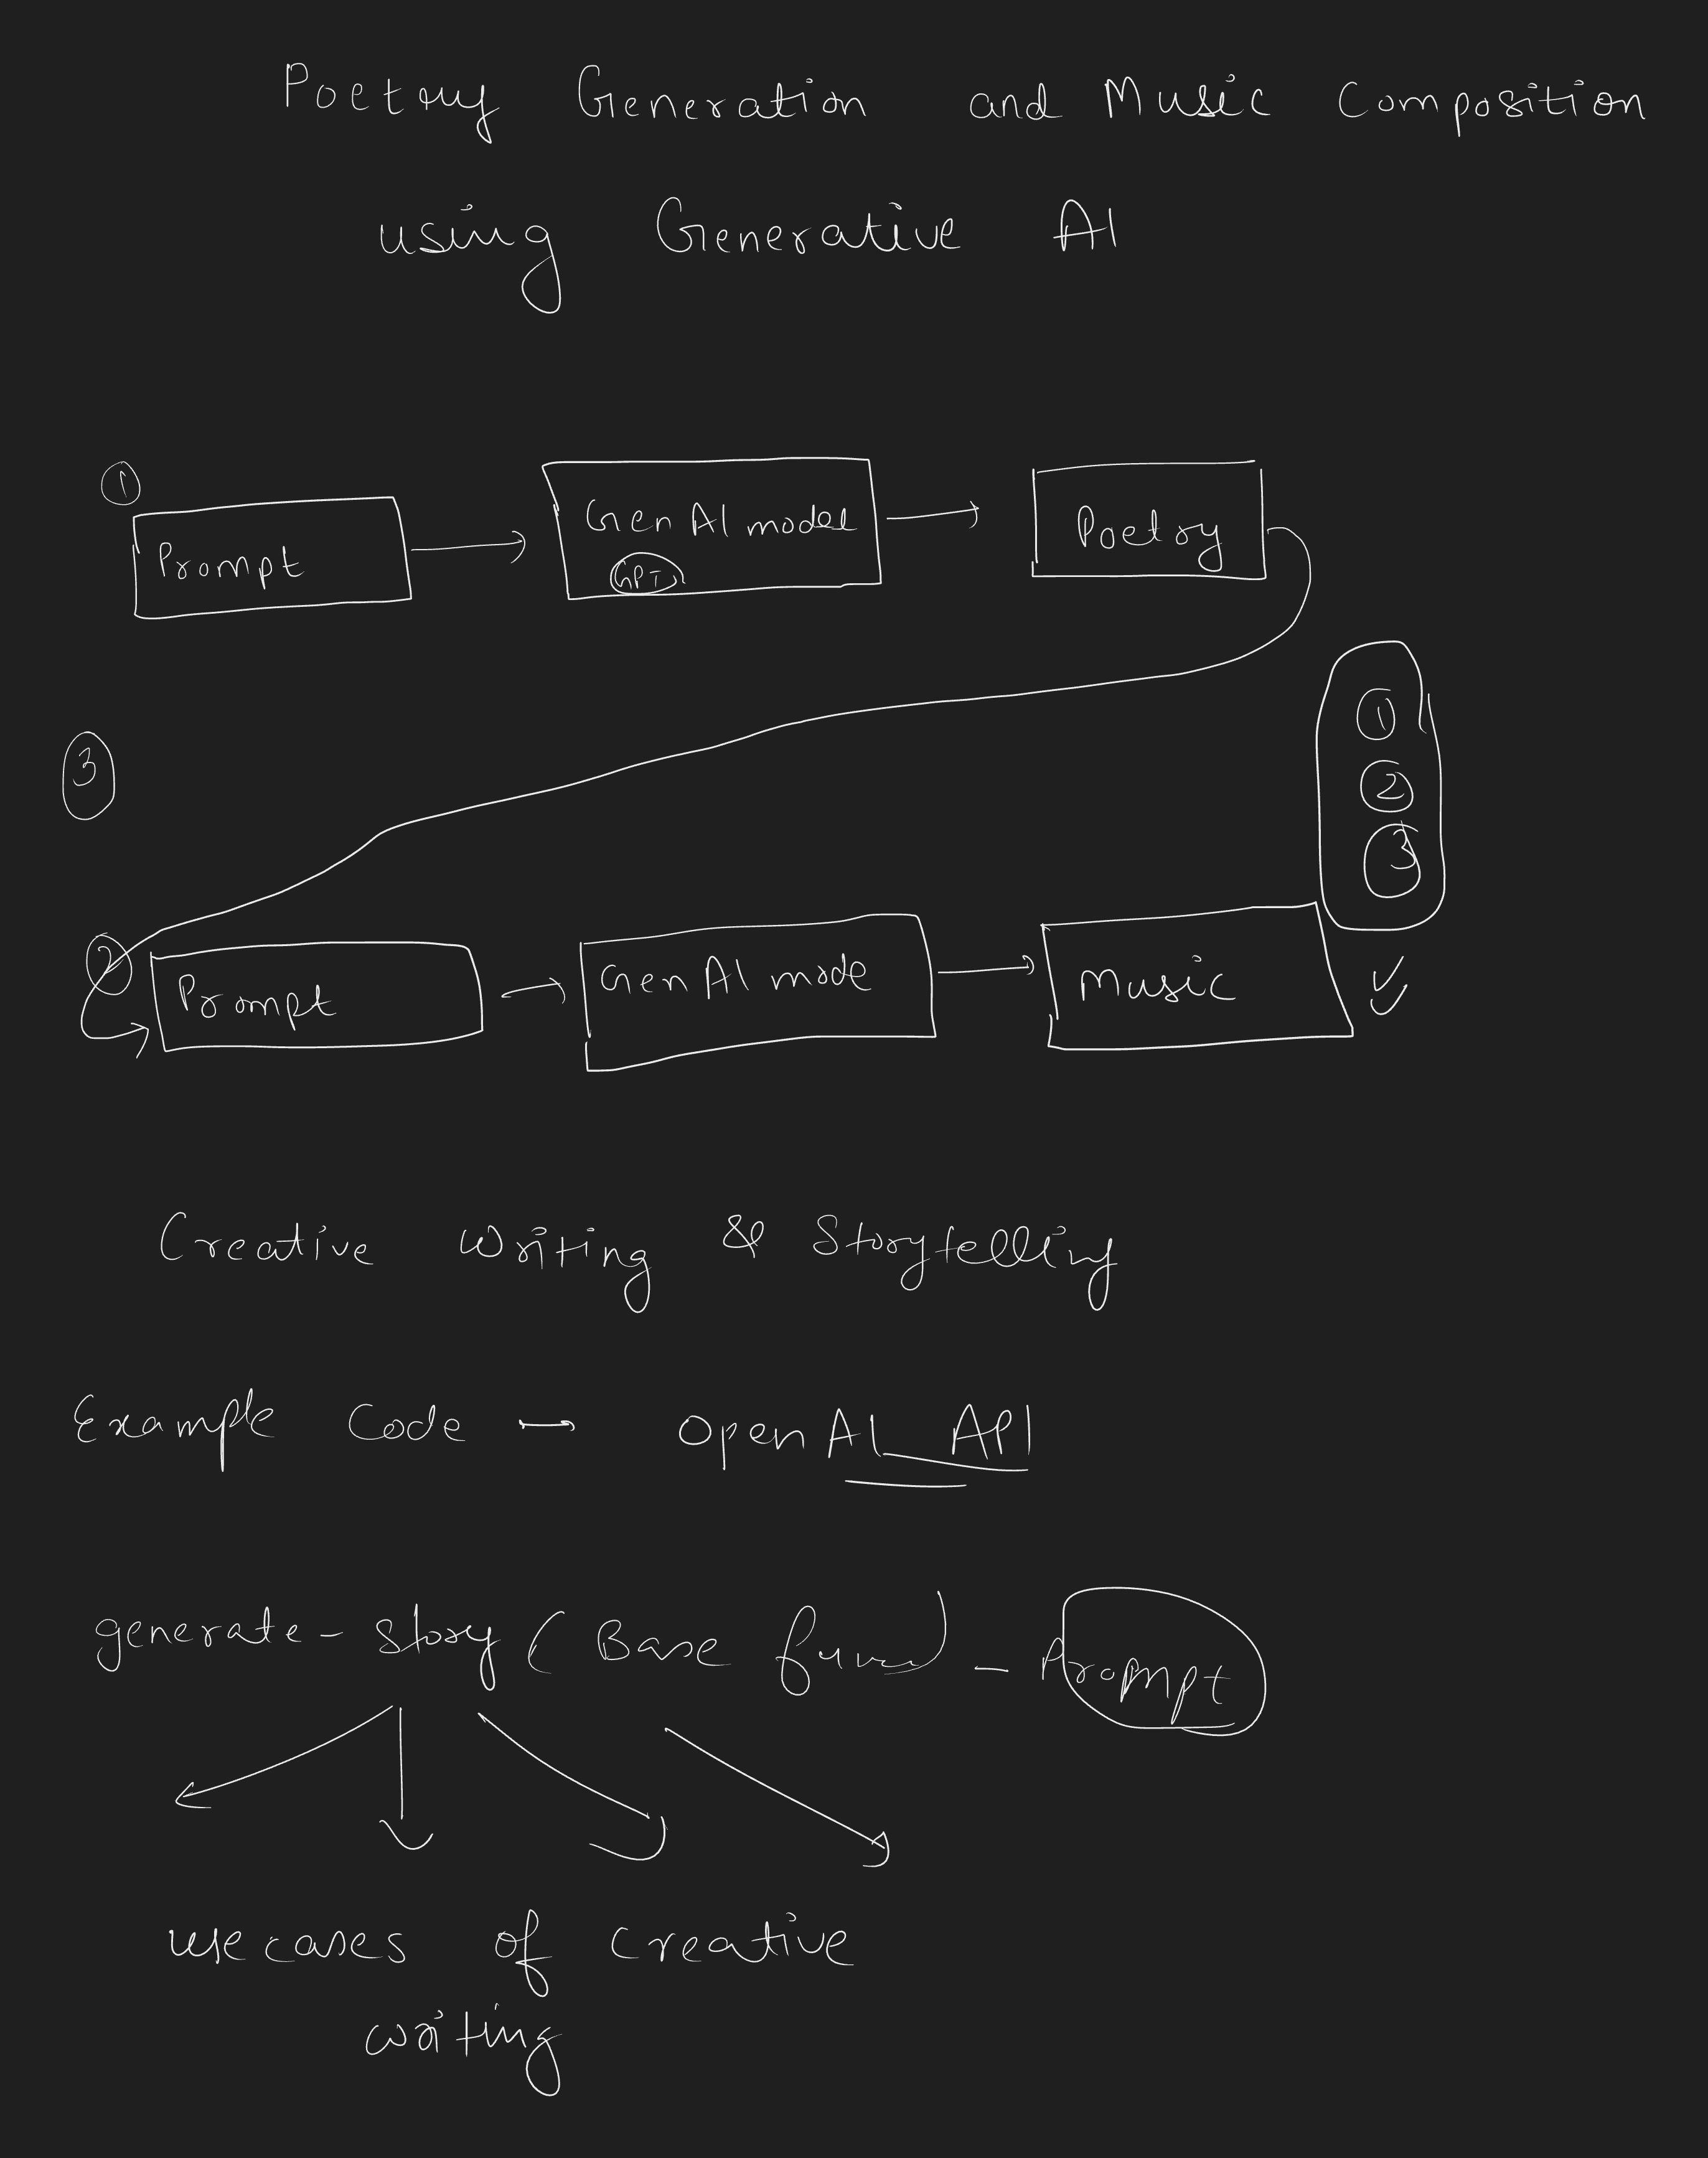 Poetry Generation and Music Composition
using Generative AI
①
Prompt
GenAI model
GPT
Poetry
③
①
②
③
②
Prompt
GenAI mode
Music
Creative Writing & Storytelling
Example Code → OpenAI API
generate-story (Base func) - Prompt
usecases of creative
writing